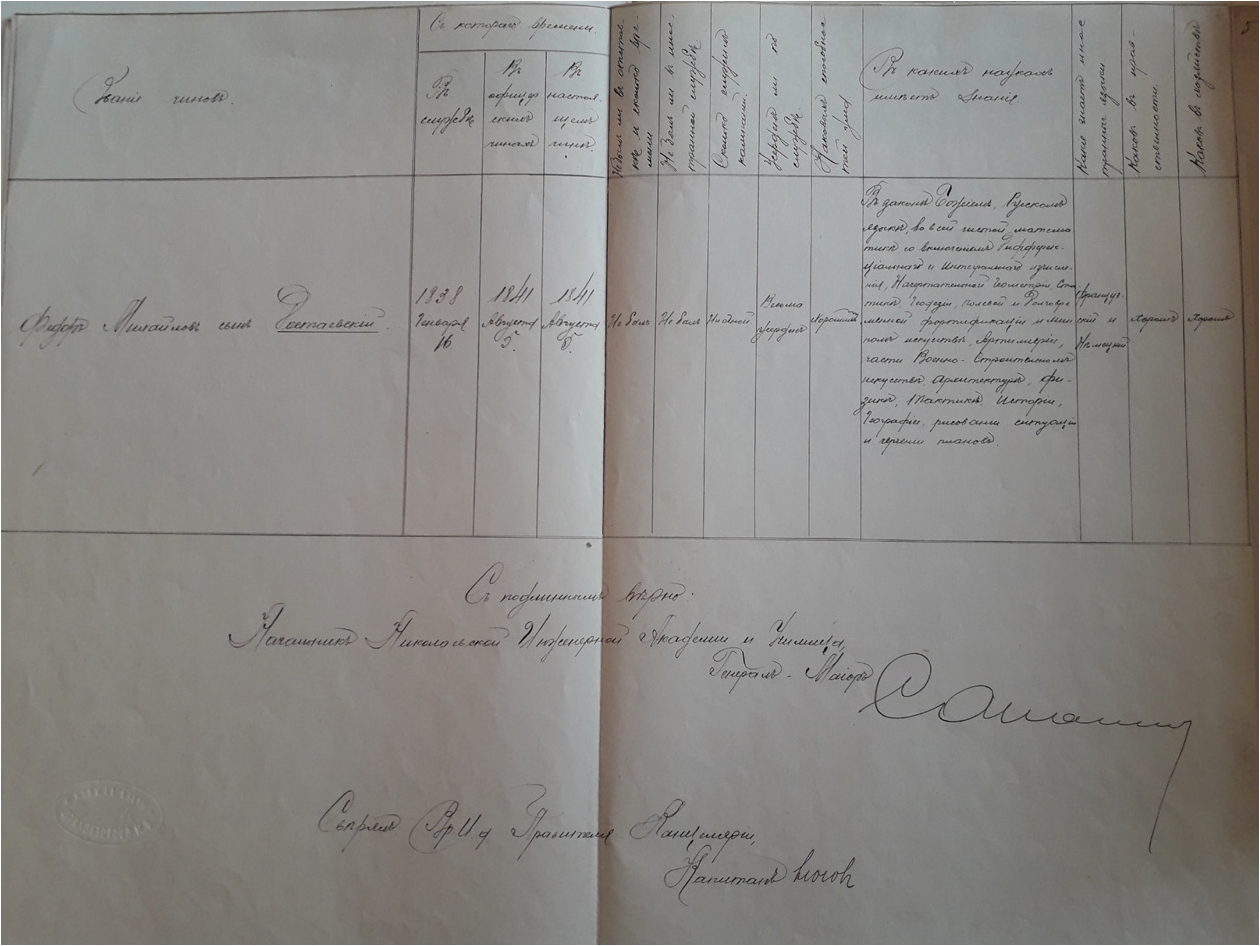 Званіе чиновъ.
Съ котораго времени.
Въ
службѣ
Въ
офицер
скихъ
чинахъ
Въ
настоя-
щемъ
чинѣ.
Не былъ ли въ
и сколько вре-
мени
Не былъ ли въ инос-
транной службѣ
Сколько служилъ
кампаній.
Усерденъ ли къ
службѣ.
Каковыхъ способнос-
тей ума
Въ какихъ наукахъ
имѣетъ знанія
Какіе знаетъ инос-
транные языки
Каковъ въ нрав-
ственности.
Каковъ въ хозяйствѣ
Федоръ Михайловъ сынъ Достаевскій.
1838
Января
16
1841
Августа
5.
1841
Августа
5.
Не былъ
Не былъ
Ни одной
Весьма
усерденъ
Хорошихъ
Въ законѣ Божіемъ, Русскомъ
языкѣ, во всей чистой матема
тикѣ со включеніемъ Дифферен-
ціальнаго и Интегральнаго исчисле-
нія, Начертательной Геометріи, Ста
тикѣ, Геодезіи, полевой и Долговре-
менной фортификаціи и мин
номъ искуствѣ, Артиллеріи,
части Военно-Строительномъ
искуствѣ, Архитектурѣ, Фи-
зикѣ, Тактикѣ, Исторіи,
Географіи, рисованіи ситуацій
и черченіи плановъ.
Француз
скій и
Нѣмецкій
Хорошъ
Хорошъ
Съ подлиннымъ вѣрно.
Начальникъ Николаевской Инженерной Академіи и Училища,
Генералъ-Маіоръ
Свѣрялъ Вр. И. д. Правителя Канцеляріи,
Капитанъ